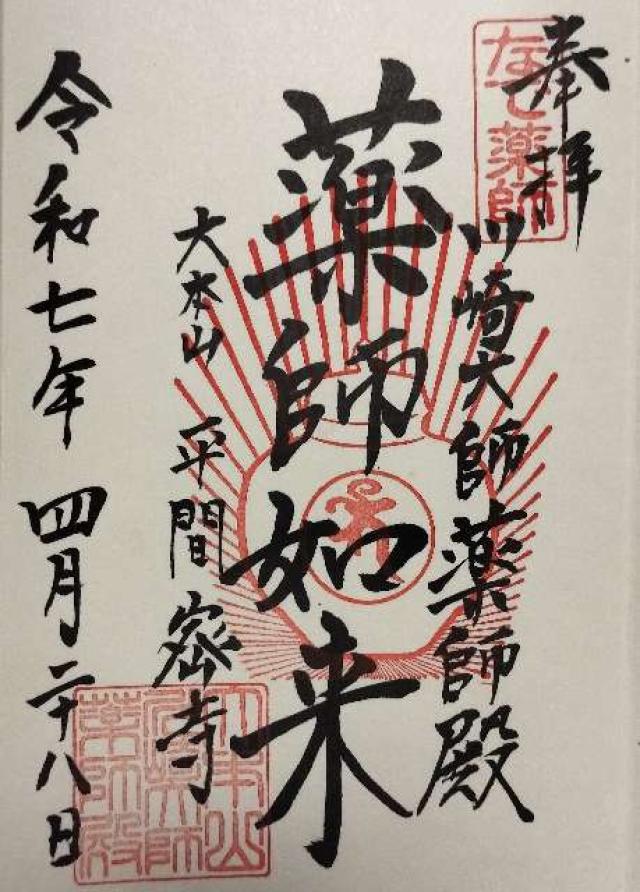 奉拝
なで薬師
川崎大師薬師殿
薬師如来
大本山 平間密寺
令和七年 四月二十八日
大本山
薬師殿